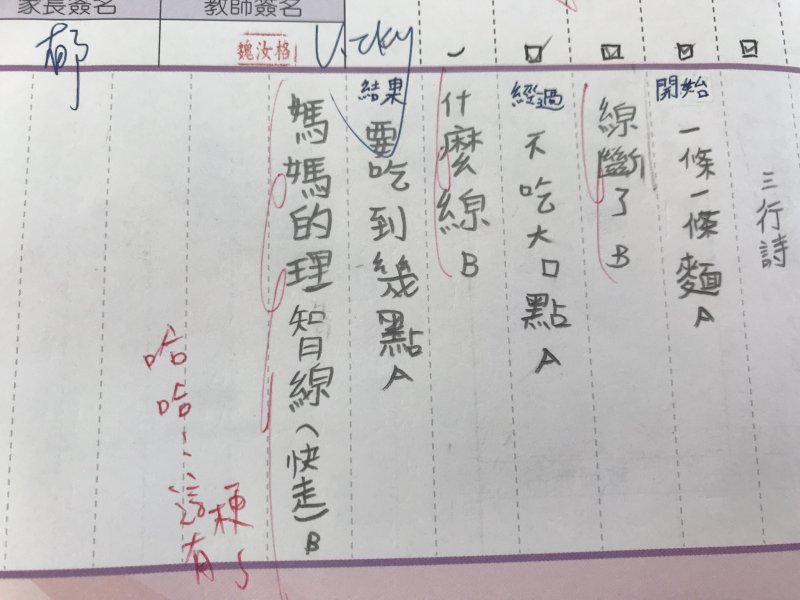 家長簽名
教師簽名
郁
魏汝格
Vicky
三行詩
開始
一條一條麵A
線斷了B
經過
不吃大口點A
什麼線B
結果
要吃到幾點A
媽媽的理智線(快走)B
哈哈…這有梗